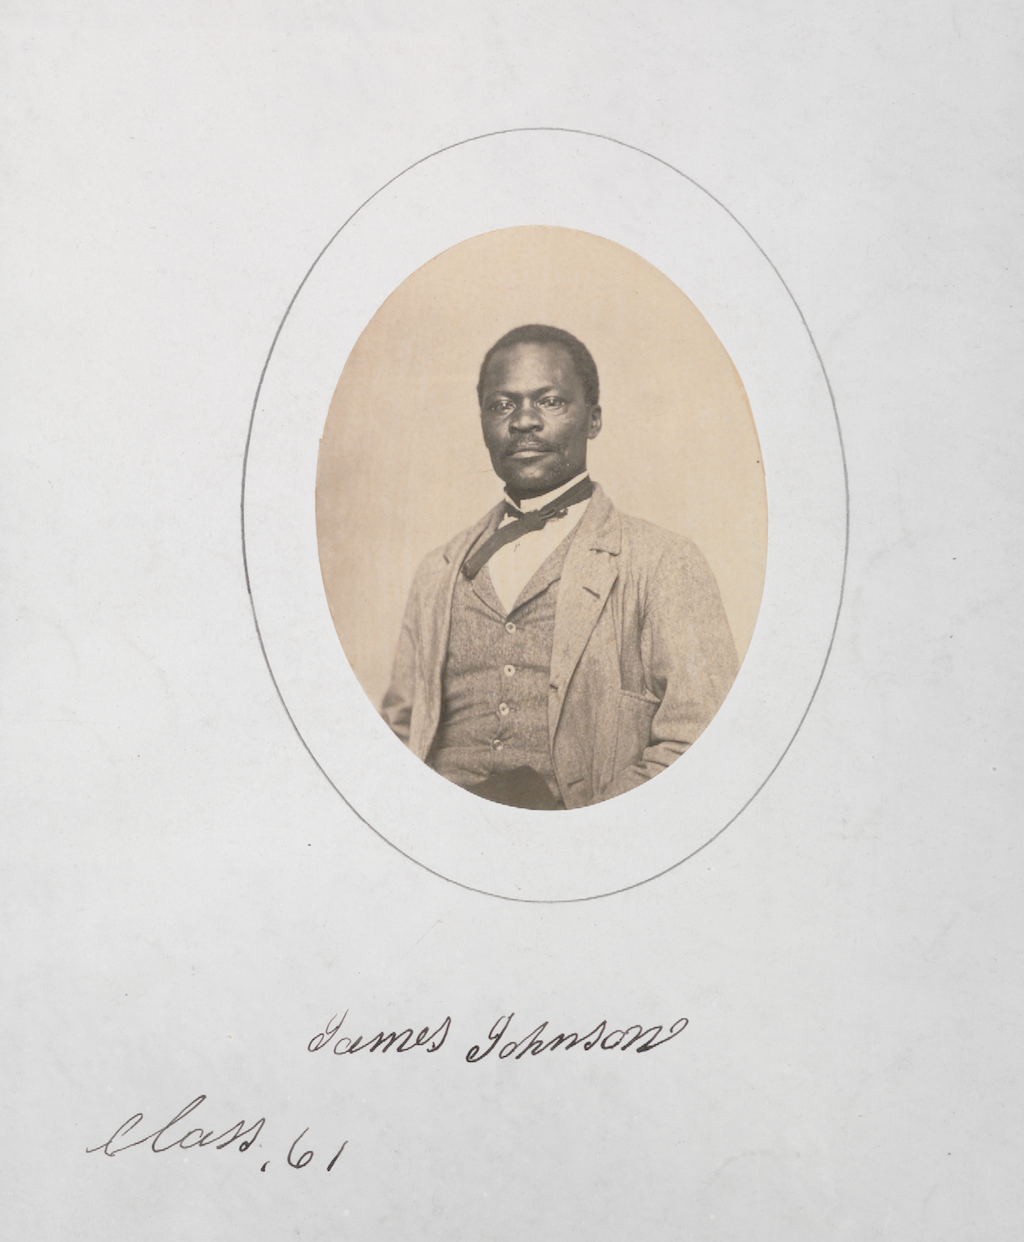 James Johnson
Class, 61